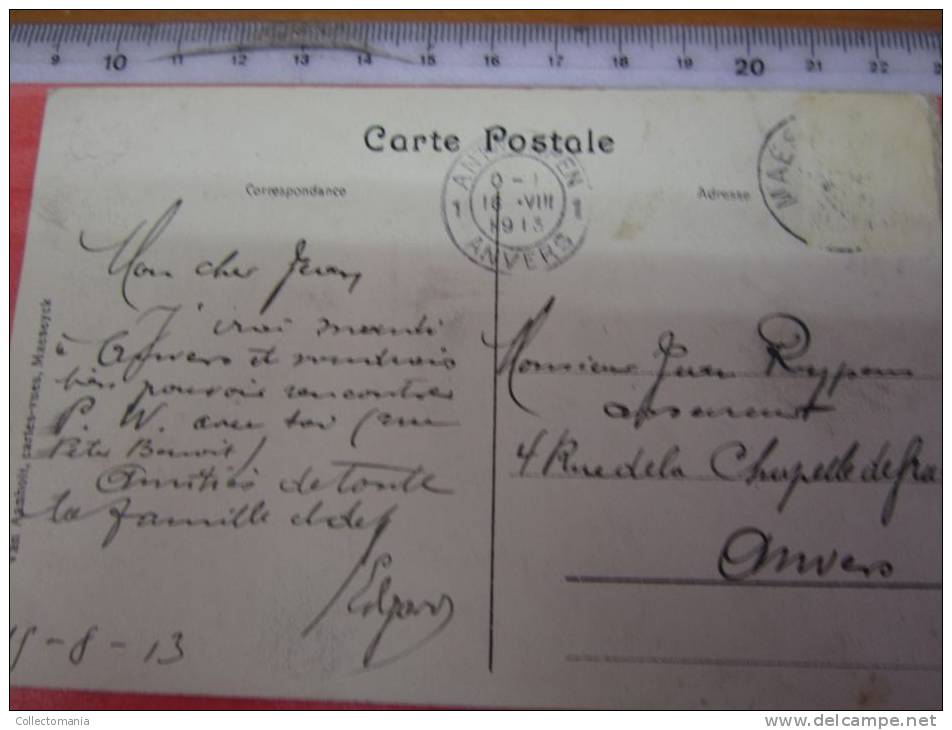 9 10 11 12 13 14 15 16 17 18 19 20 21 22
Carte Postale
Correspondance
Adresse
ANTWERPEN
16 VIII
1913
1 1
ANVERS
MAES
Mon cher Jean
J'irai mardi
à Anvers et voudrais
bien pouvoir rencontrer
P. W. avec toi (rue
Peter Benoit)
Amitiés de toute
la famille et de
Edgard
15-8-13
Monsieur Jean Ruypens
4 Rue de la Chapelle de Gra
Anvers
cartes-vues, Maeseyck
Collectomania
www.delcampe.net